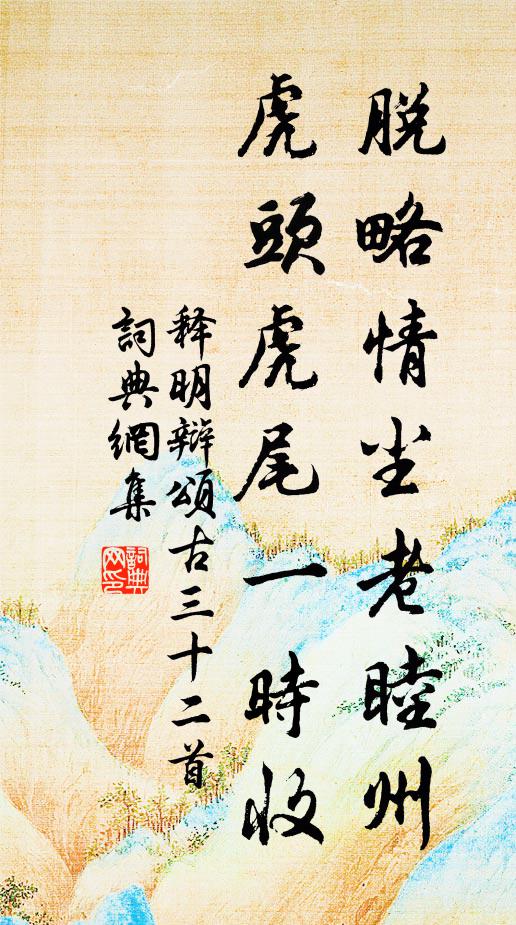 脱略情尘老睦州
虎頭虎尾一時收
释明辩頌古三十二首
詞典網集
詞典网印